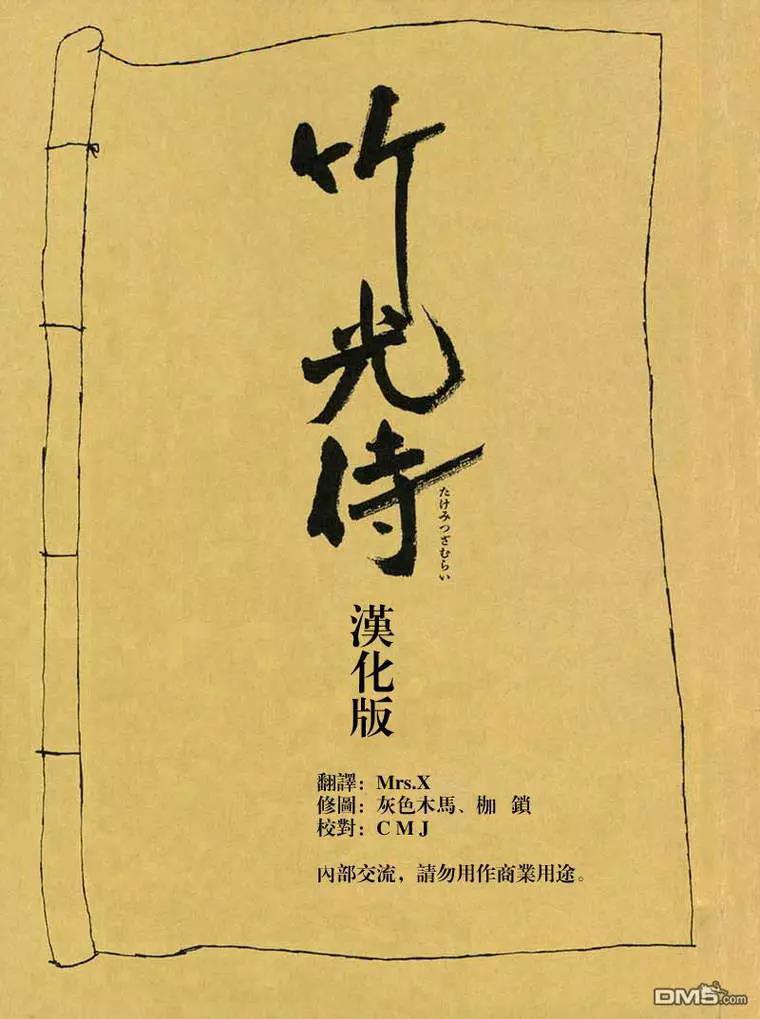 竹光侍
たけみつざむらい
漢化版
翻譯：Mrs.X
修圖：灰色木馬、枷 鎖
校對：C M J
內部交流，請勿用作商業用途。
DM5.com